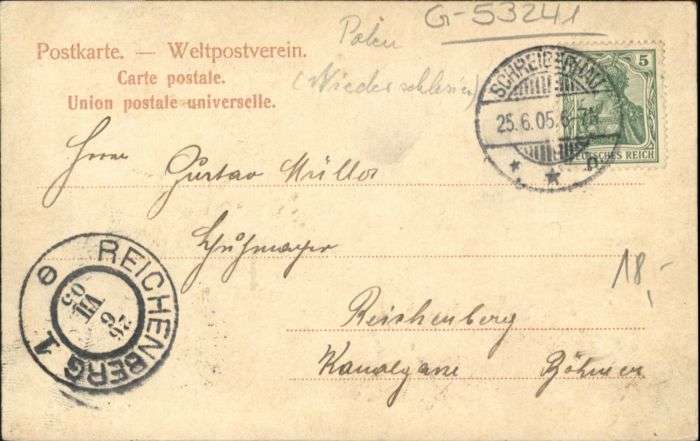 G-53241
Polen
(Niederschlesien)
Postkarte. — Weltpostverein.
Carte postale.
Union postale universelle.
SCHREIBERHAU
25.6.05.6-7N.
5
DEUTSCHES REICH
Herrn Gustav Müller
Schuhmacher
18,-
Reichenberg
Kanalgasse Böhmen
REICHENBERG 1
26
6
VII
05
e